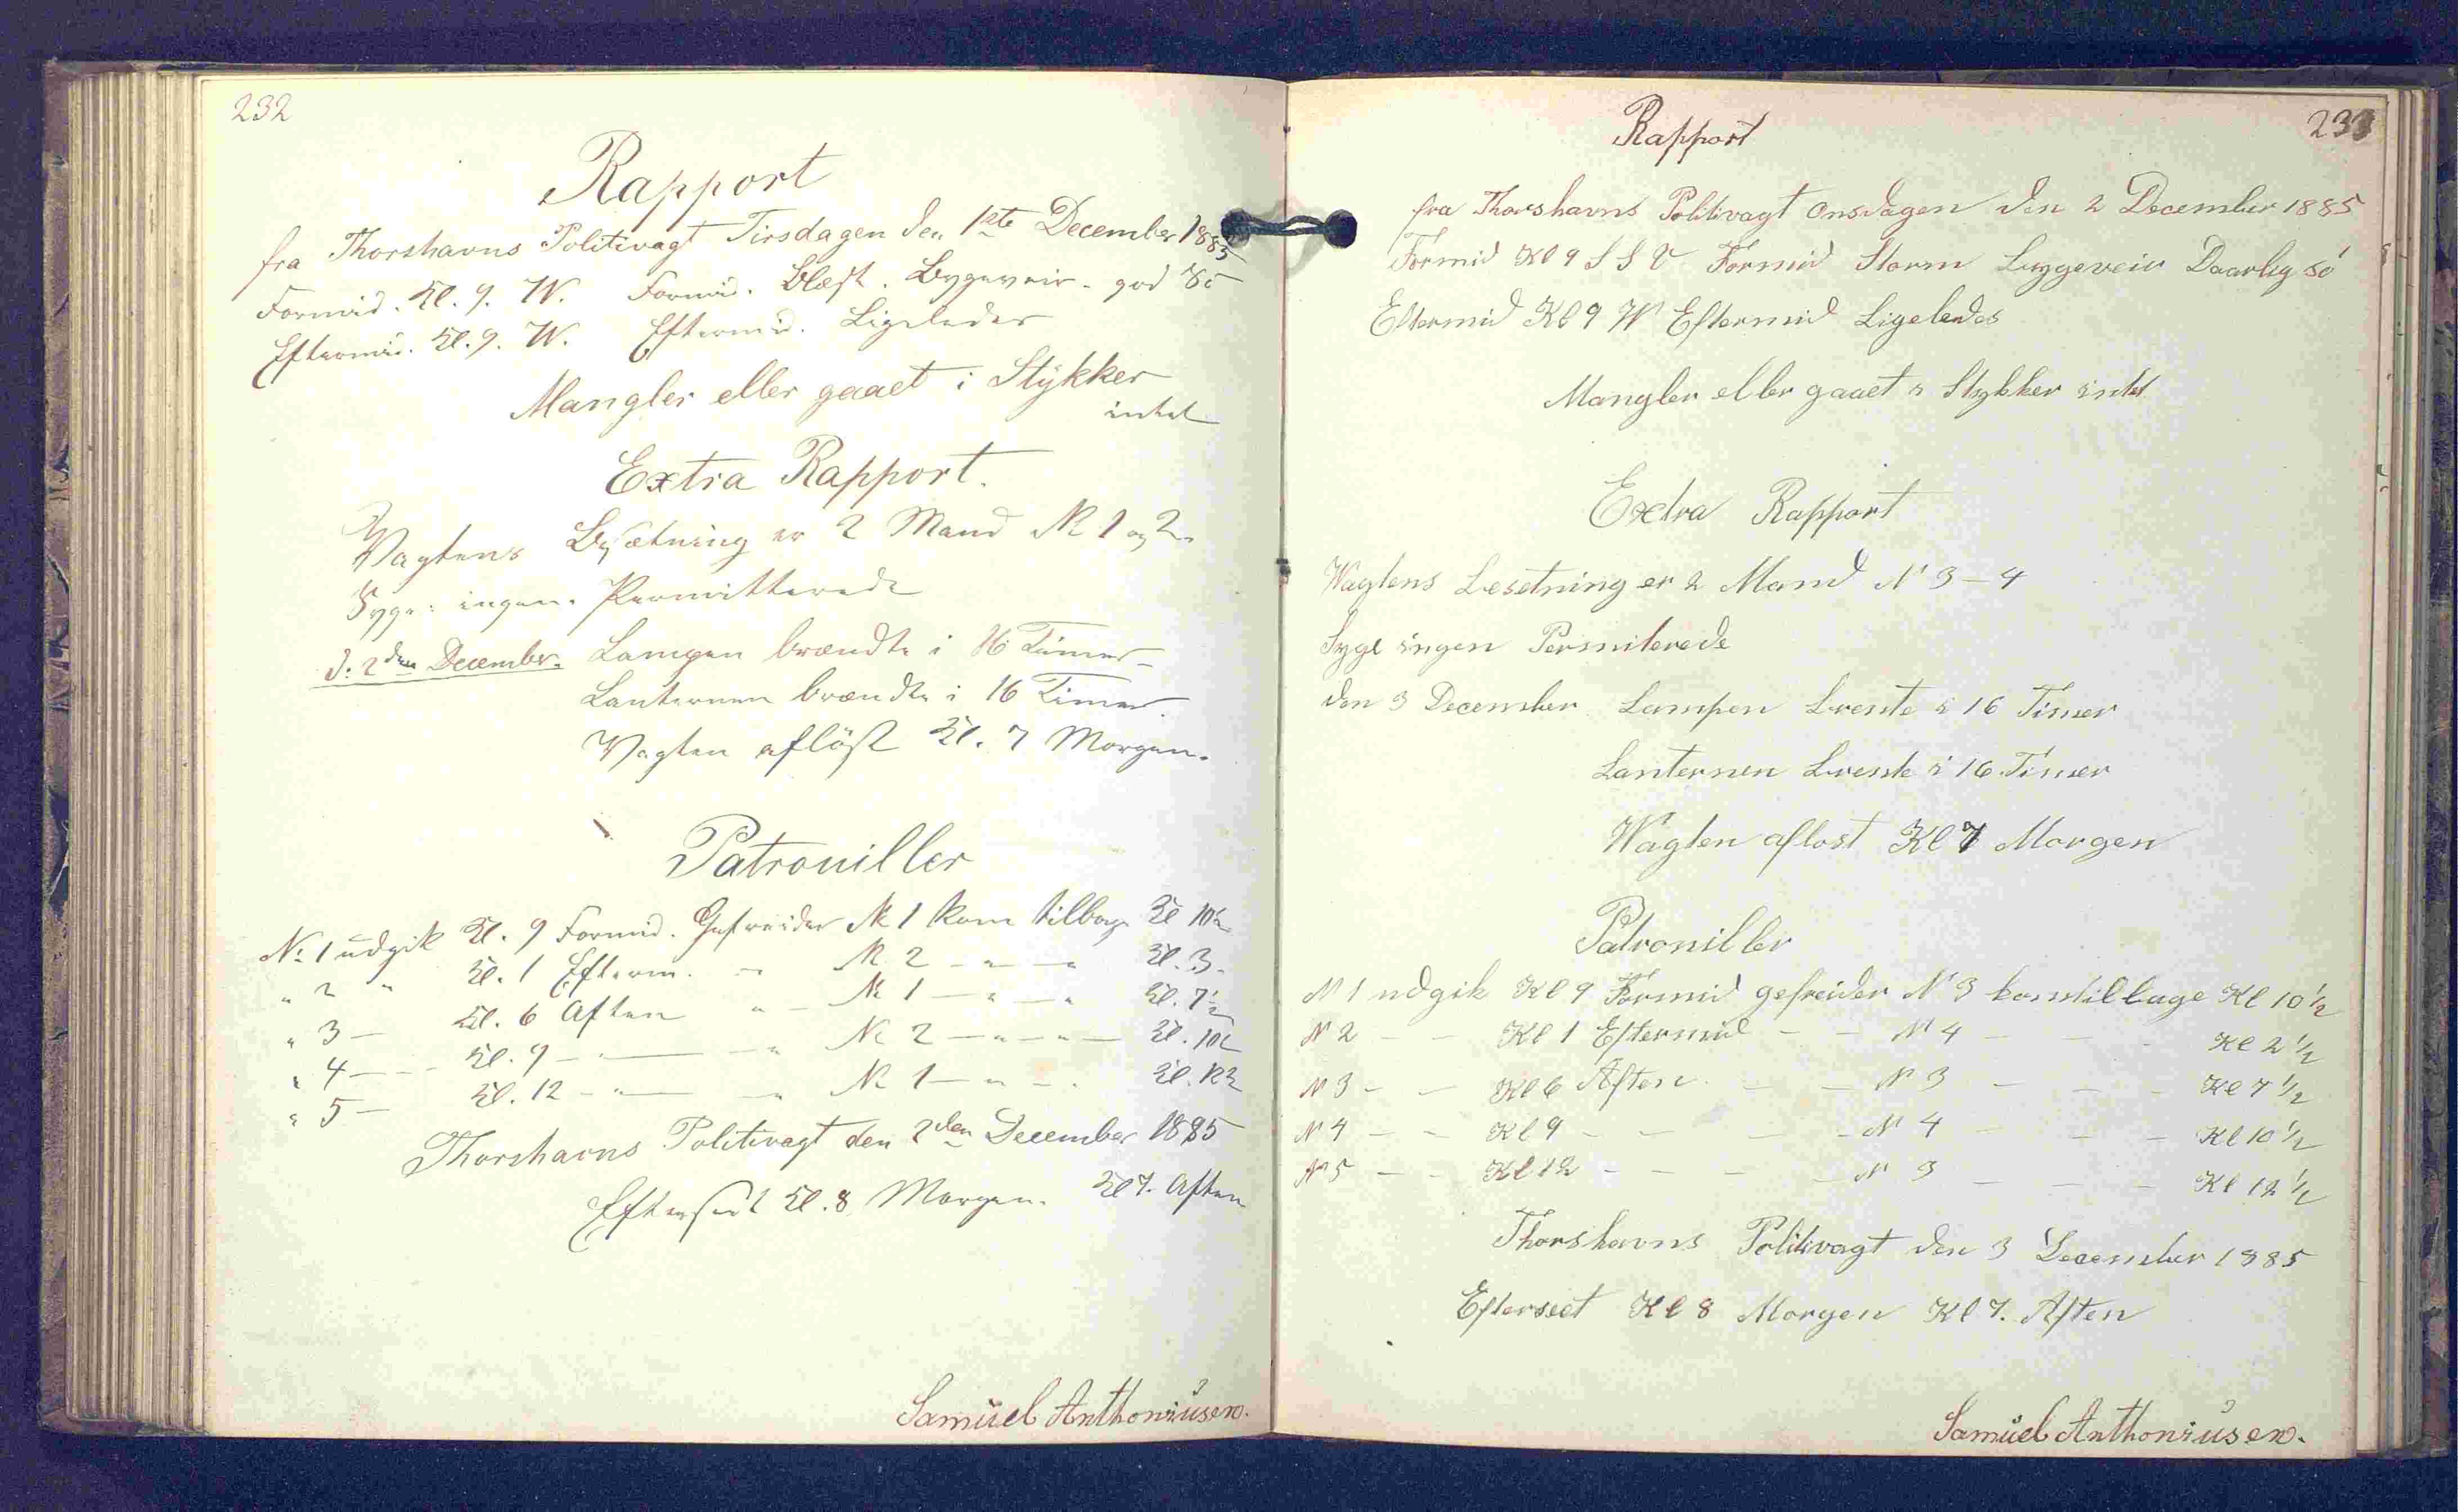 232
Rapport
fra Thorshavns Politivagt Tirsdagen den 1ste December 1885
Formid. Kl. 9. W. Formid. Blæst. Bygeveir. god Sö
Eftermid. Kl. 9. W. Eftermid. Ligeledes
Mangler eller gaaet i Stÿkker
intet
Extra Rapport.
Vagtens Besætning er 2 Mand № 1 og 2.
Syge: ingen. Permitterede
d: 2den December. Lampen brændte i 16 Timer
Lanternen brændte i 16 Timer.
Vagten aflöst Kl. 7 Morgen.
Patrouiller
№ 1 udgik Kl. 9 Formid. Gefreider № 1 kom tilbage Kl 10½
" 2 " Kl. 1 Efterm. - № 2 - " - " Kl. 3.
" 3 - Kl. 6 Aften " - № 1 - " - " Kl. 7½
" 4 - - Kl. 9 - " - " № 2 - " - " - Kl. 10½
" 5 - Kl. 12 - " - " № 1 - " - " Kl. 12½
Thorshavns Politivagt den 2den December 1885
Efterseet Kl. 8 Morgen. Kl 7. Aften
Samüel Anthoniüsen.
233
Rapport
fra Thorshavns Politivagt Onsdagen den 2 December 1885
Formid Kl 9 S S V Formid Storm Byggeveir Daarlig só
Eftermid Kl 9 W Eftermid Ligelendes
Mangler eller gaaet i Stykker intet
Extra Rapport
Wagtens Besetning er 2 Mand N 3 - 4
Syge ingen Permiterede
den 3 December Lampen brente i 16 Timer
Lanternen brente i 16 Timer
Wagten aflost Kl 7 Morgen
Patroniller
N 1 udgik Kl 9 Formid gefreider N 3 komtilbage Kl 10 ½
N 2 - - Kl 1 Eftermid - - N 4 - - - Kl 2 ½
N 3 - - Kl 6 Aften - - N 3 - - - Kl 7 ½
N 4 - - Kl 9 - - - - N 4 - - - Kl 10 ½
N 5 - - Kl 12 - - - - N 3 - - - Kl 12 ½
Thorshavns Politivagt den 3 December 1885
Efterseet Kl 8 Morgen Kl 7. Aften
Samüel Anthoniüsen.